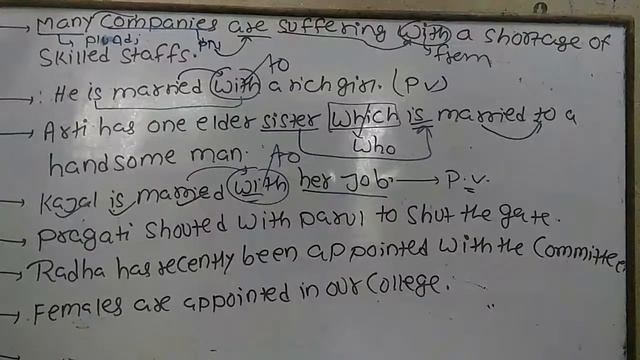 → Many companies are suffering with a shortage of
pl. adj. pn from
skilled staffs.
to
→ He is married with a rich girl. (PV)
→ Arti has one elder sister which is married to a
who
handsome man. to
→ Kajal is married with her job. → P.V.
→ Pragati shouted with Parul to shut the gate.
→ Radha has recently been appointed with the Committee
→ Females are appointed in our College.